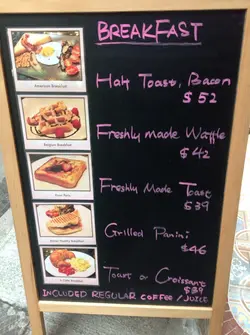 BREAKFAST
American Breakfast
Ham Toast, Bacon
$ 52
Belgium Breakfast
Freshly made Waffle
$ 42
Freshly Made Toast
$39
Grilled Panini
$46
Toast or Croissant
$39
INCLUDED REGULAR COFFEE / JUICE